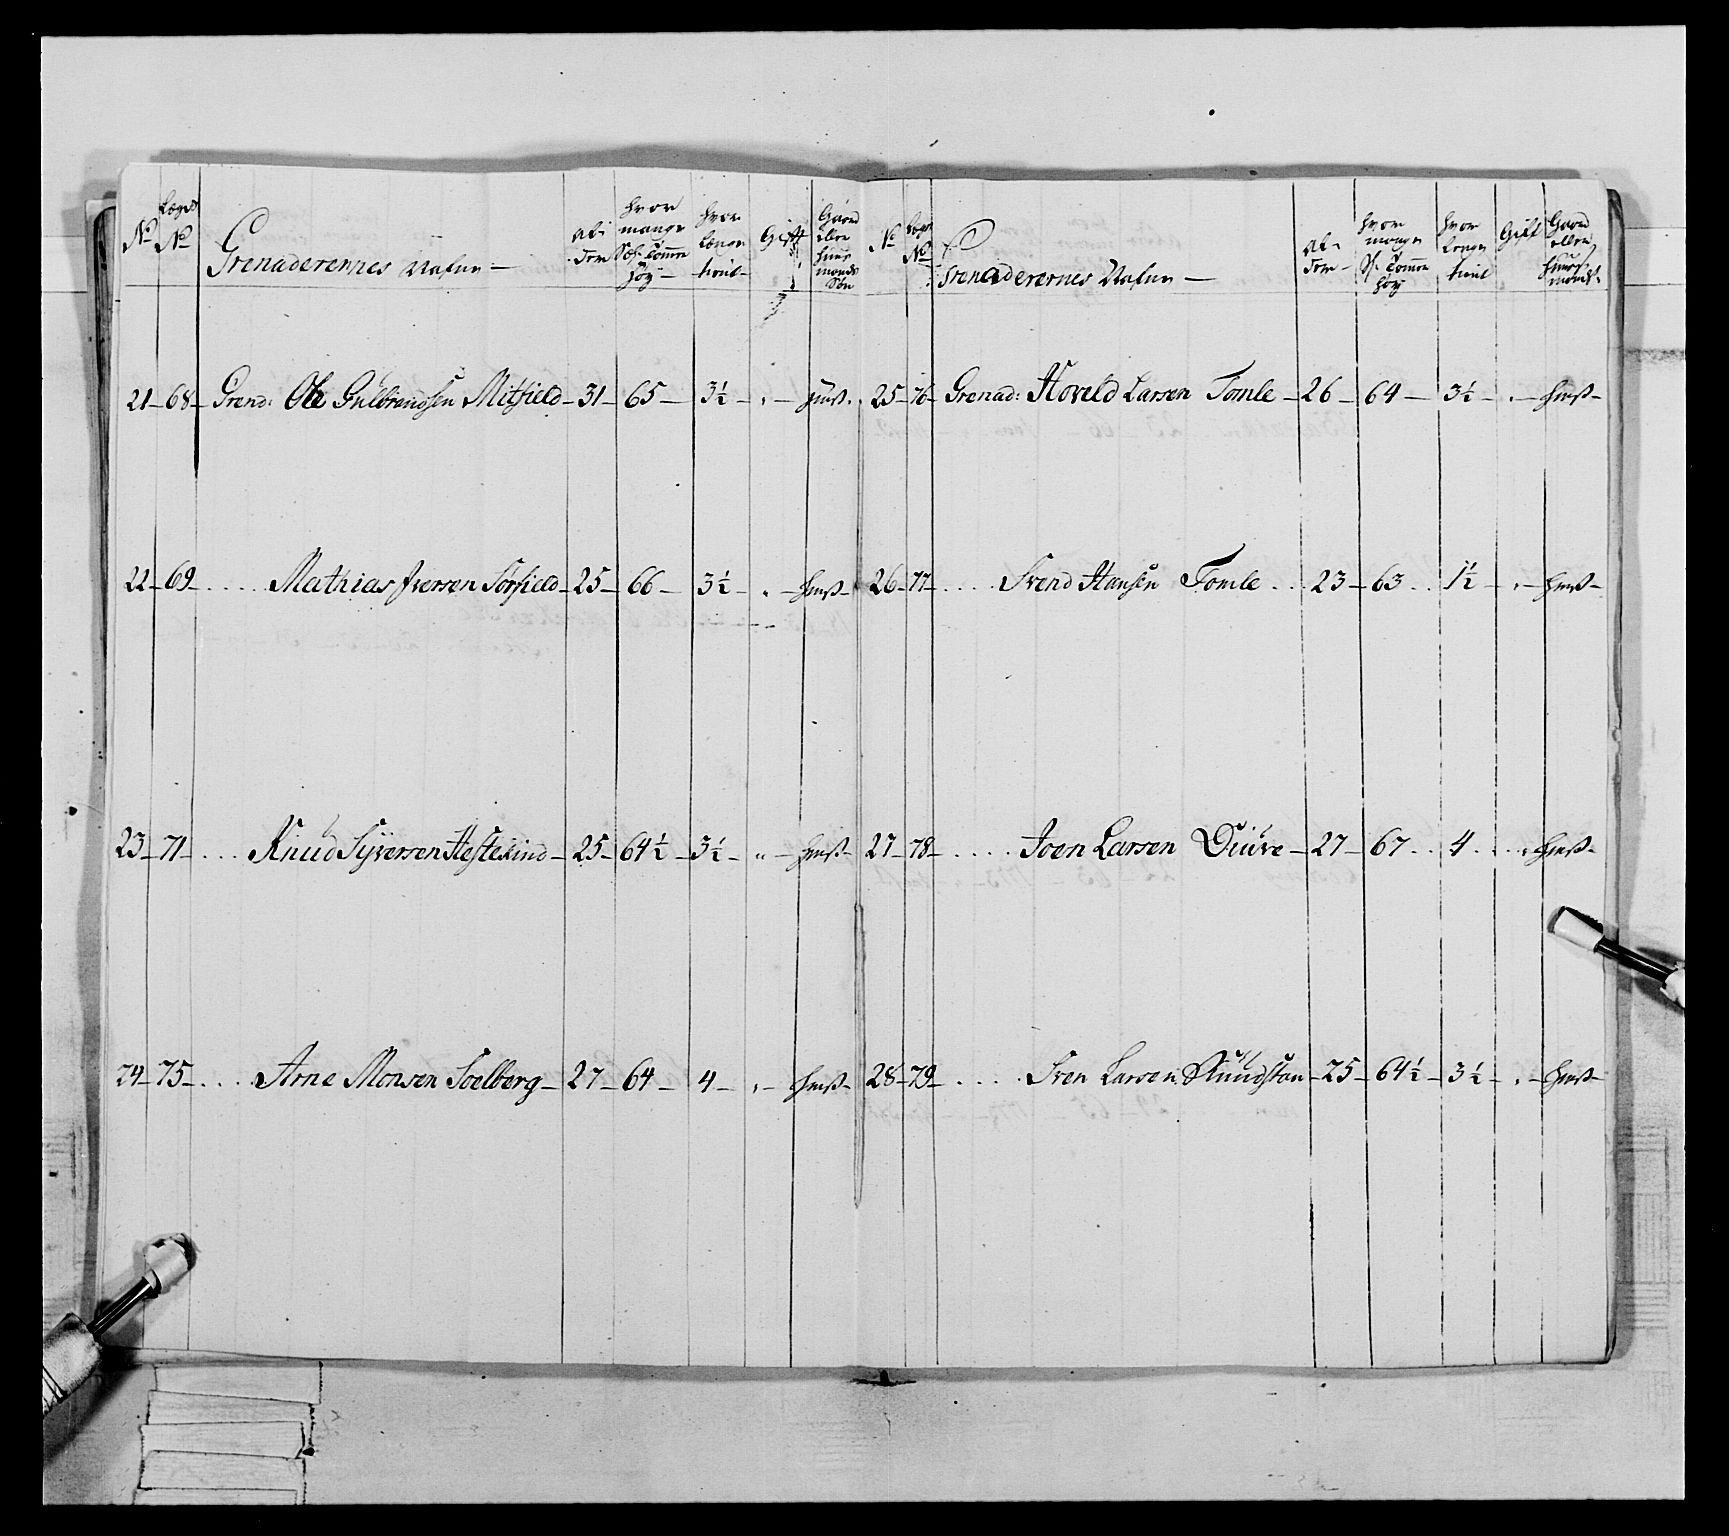 No Lægds No Grenaderernes Nafne — Al- Hvor mange Hvor længe Gift Gaard eller
21 – 68 – Grend: Ole Gulbrandsen Mitfield – 31 – 65 – 3½ – " – huus.
22 – 69 . . . . Mathias Iversen Sørfield – 25 – 66 – 3½ – " – huus –
23 – 71 – . . . Knud Syversen Hestekind – 25 – 64½ – 3½ – " – huus –
24 – 75 – . . . Arne Monsen Soelberg – 27 – 64 – 4 – " – huus –
No Lægd No Grenaderernes Nafne — Al- Hvor mange Hvor længe Gift Gaard eller
25 – 76 – Grenad: Hoveld Larsen Tomle – 26 – 64 – 3½ – " – huus –
26 – 77 – . . . . Svend Hansen Tomle . . 23 – 63 . . 1½ – " – huus –
27 – 78 – . . . . Joen Larsen Diuve – 27 – 67 . . 4 . . " huus –
28 – 79 – . . . . Sven Larsen Ruudstan – 25 – 64½ – 3½ – " – huus –